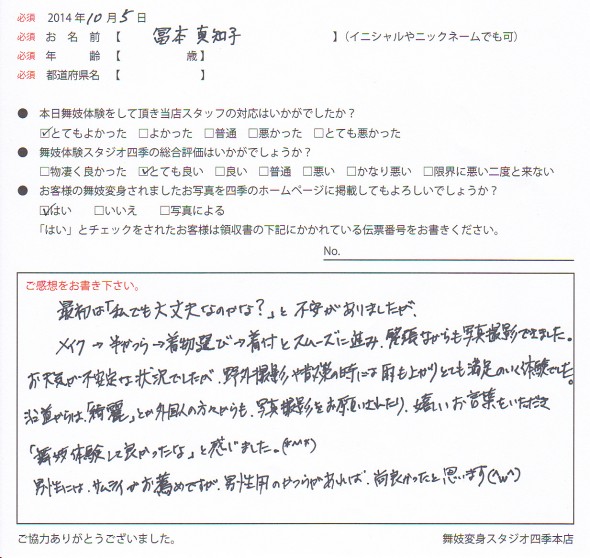 必須 2014年10月5日
必須 お名前【 冨本 真知子 】(イニシャルやニックネームでも可)
必須 年齢【 歳】
必須 都道府県名【 】
● 本日舞妓体験をして頂き当店スタッフの対応はいかがでしたか?
☑とてもよかった □よかった □普通 □悪かった □とても悪かった
● 舞妓体験スタジオ四季の総合評価はいかがでしょうか?
□物凄く良かった ☑とても良い □良い □普通 □悪い □かなり悪い □限界に悪い二度と来ない
● お客様の舞妓変身されましたお写真を四季のホームページに掲載してもよろしいでしょうか?
☑はい □いいえ □写真による
「はい」とチェックをされたお客様は領収書の下記にかかれている伝票番号をお書きください。
No.
ご感想をお書き下さい。
最初は「私でも大丈夫なのかな?」と不安がありましたが、
メイク→半かつら→着物選び→着付とスムーズに進み、緊張ながらも写真撮影できました。
お天気が不安定な状況でしたが、野外撮影や散策の時には雨も上がりとても満足のいく体験でした。
沿道からは、「綺麗」とか外国人の方々からも、写真撮影をお願いされたり、嬉しいお言葉をいただき
「舞妓体験して良かったな」と感じました。(*^^*)
男性には、サムライがお薦めですが、男性用のかつらがあれば、尚良かったと思います(^w^)
ご協力ありがとうございました。
舞妓変身スタジオ四季本店